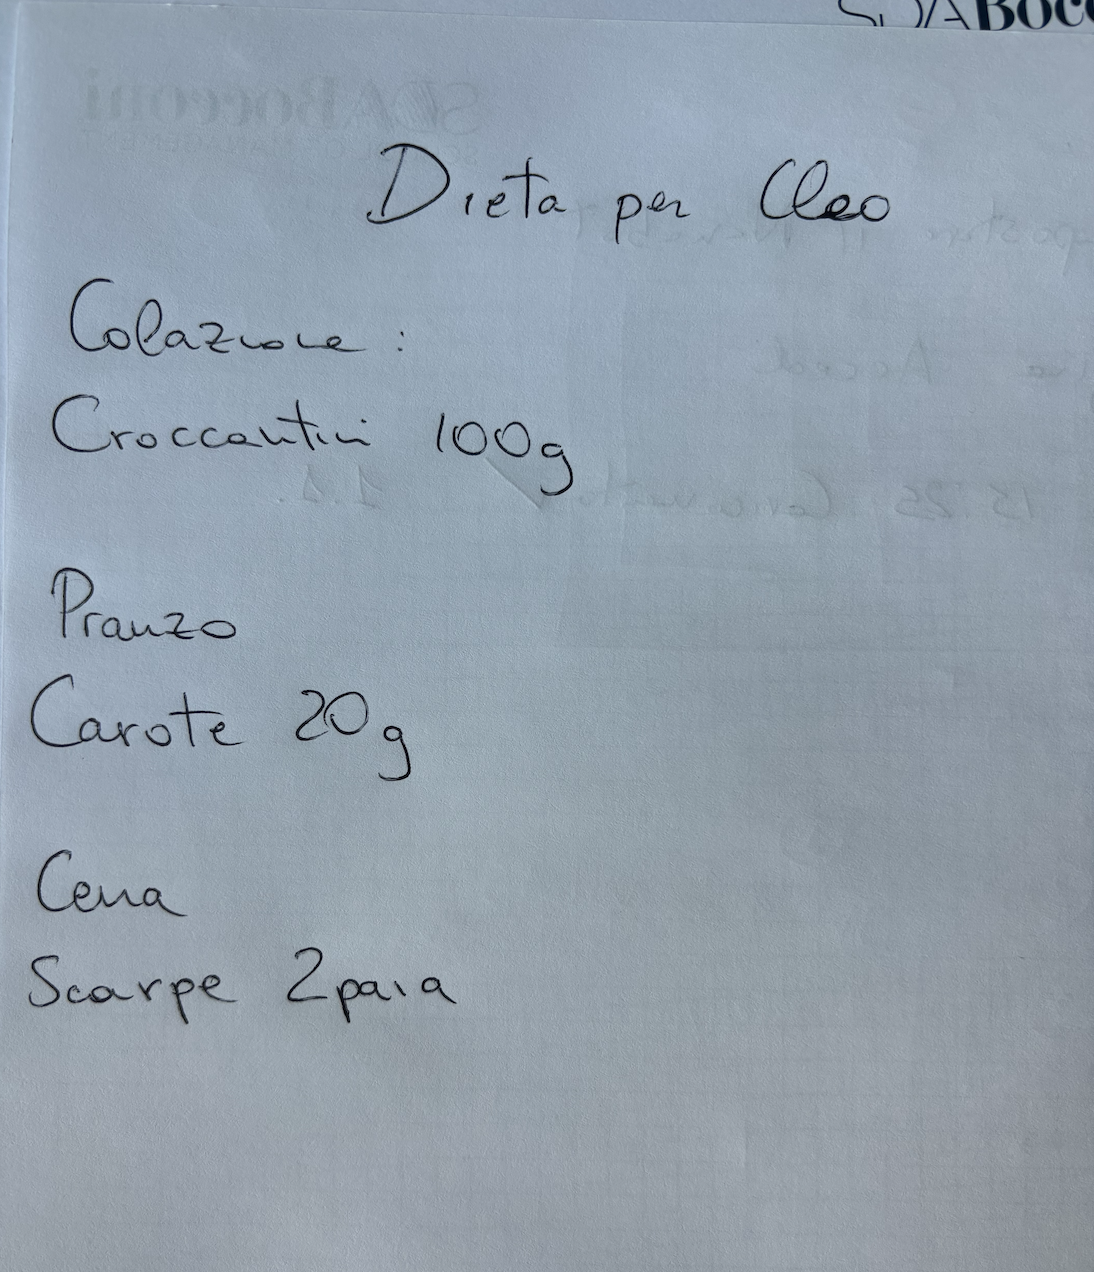 SDABocc
Dieta per Cleo
Colazione :
Croccantini 100g
Pranzo
Carote 20g
Cena
Scarpe 2 paia